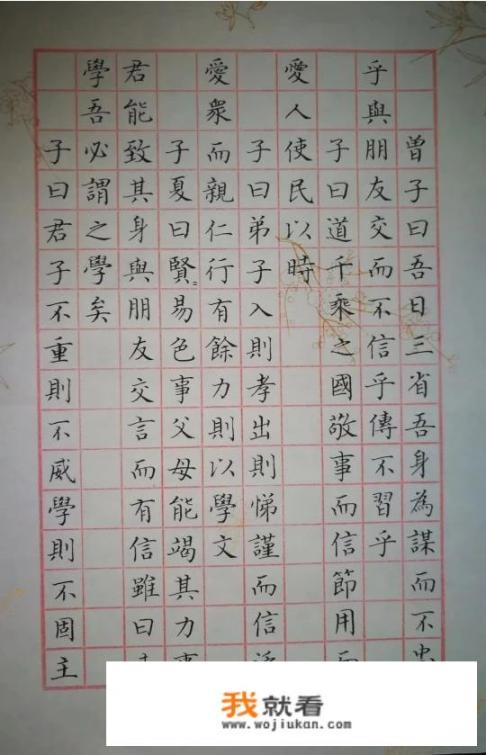 曾子曰吾日三省吾身為謀而不忠
乎與朋友交而不信乎傳不習乎
子曰道千乘之國敬事而信節用而
愛人使民以時
子曰弟子入則孝出則悌謹而信
愛衆而親仁行有餘力則以學文
子夏曰賢〻易色事父母能竭其力事
君能致其身與朋友交言而有信雖曰
學吾必謂之學矣
子曰君子不重則不威學則不固主
我就看
www.wojiukan.com